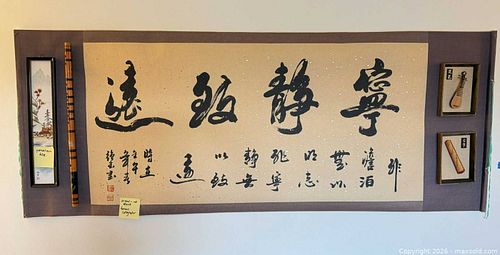 寧靜致遠
非
澹泊
無以
明志
非寧
靜無
以致
遠
時在
Copyright 2026 - maxsold.com